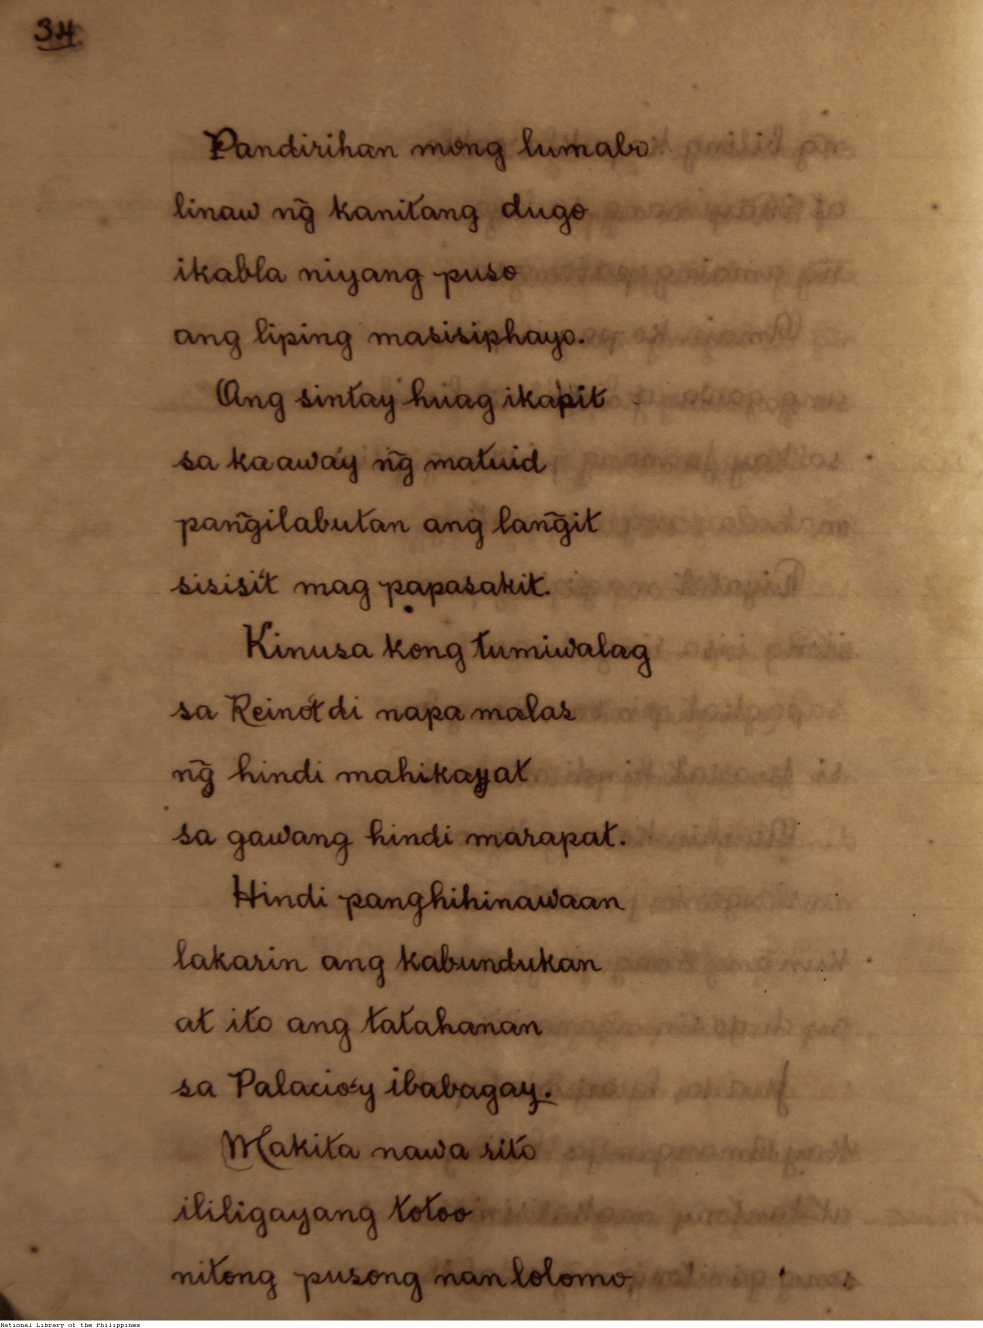 34.
Pandirihan mong lumabo
linaw ng̃ kanitang dugo
ikabla niyang puso
ang liping masisiphayo.
Ang sintay huag ikapit
sa kaaway ng̃ matuid
pang̃ilabutan ang lang̃it
sisisi't mag papasakit.
Kinusa kong tumiwalag
sa Reino't di napa malas
ng̃ hindi mahikayat
sa gawang hindi marapat.
Hindi panghihinawaan
lakarin ang kabundukan
at ito ang tatahanan
sa Palacio'y ibabagay.
Makita nawa sito
ililigayang totoo
nitong pusong nanlolomo,
National Library of the Philippines